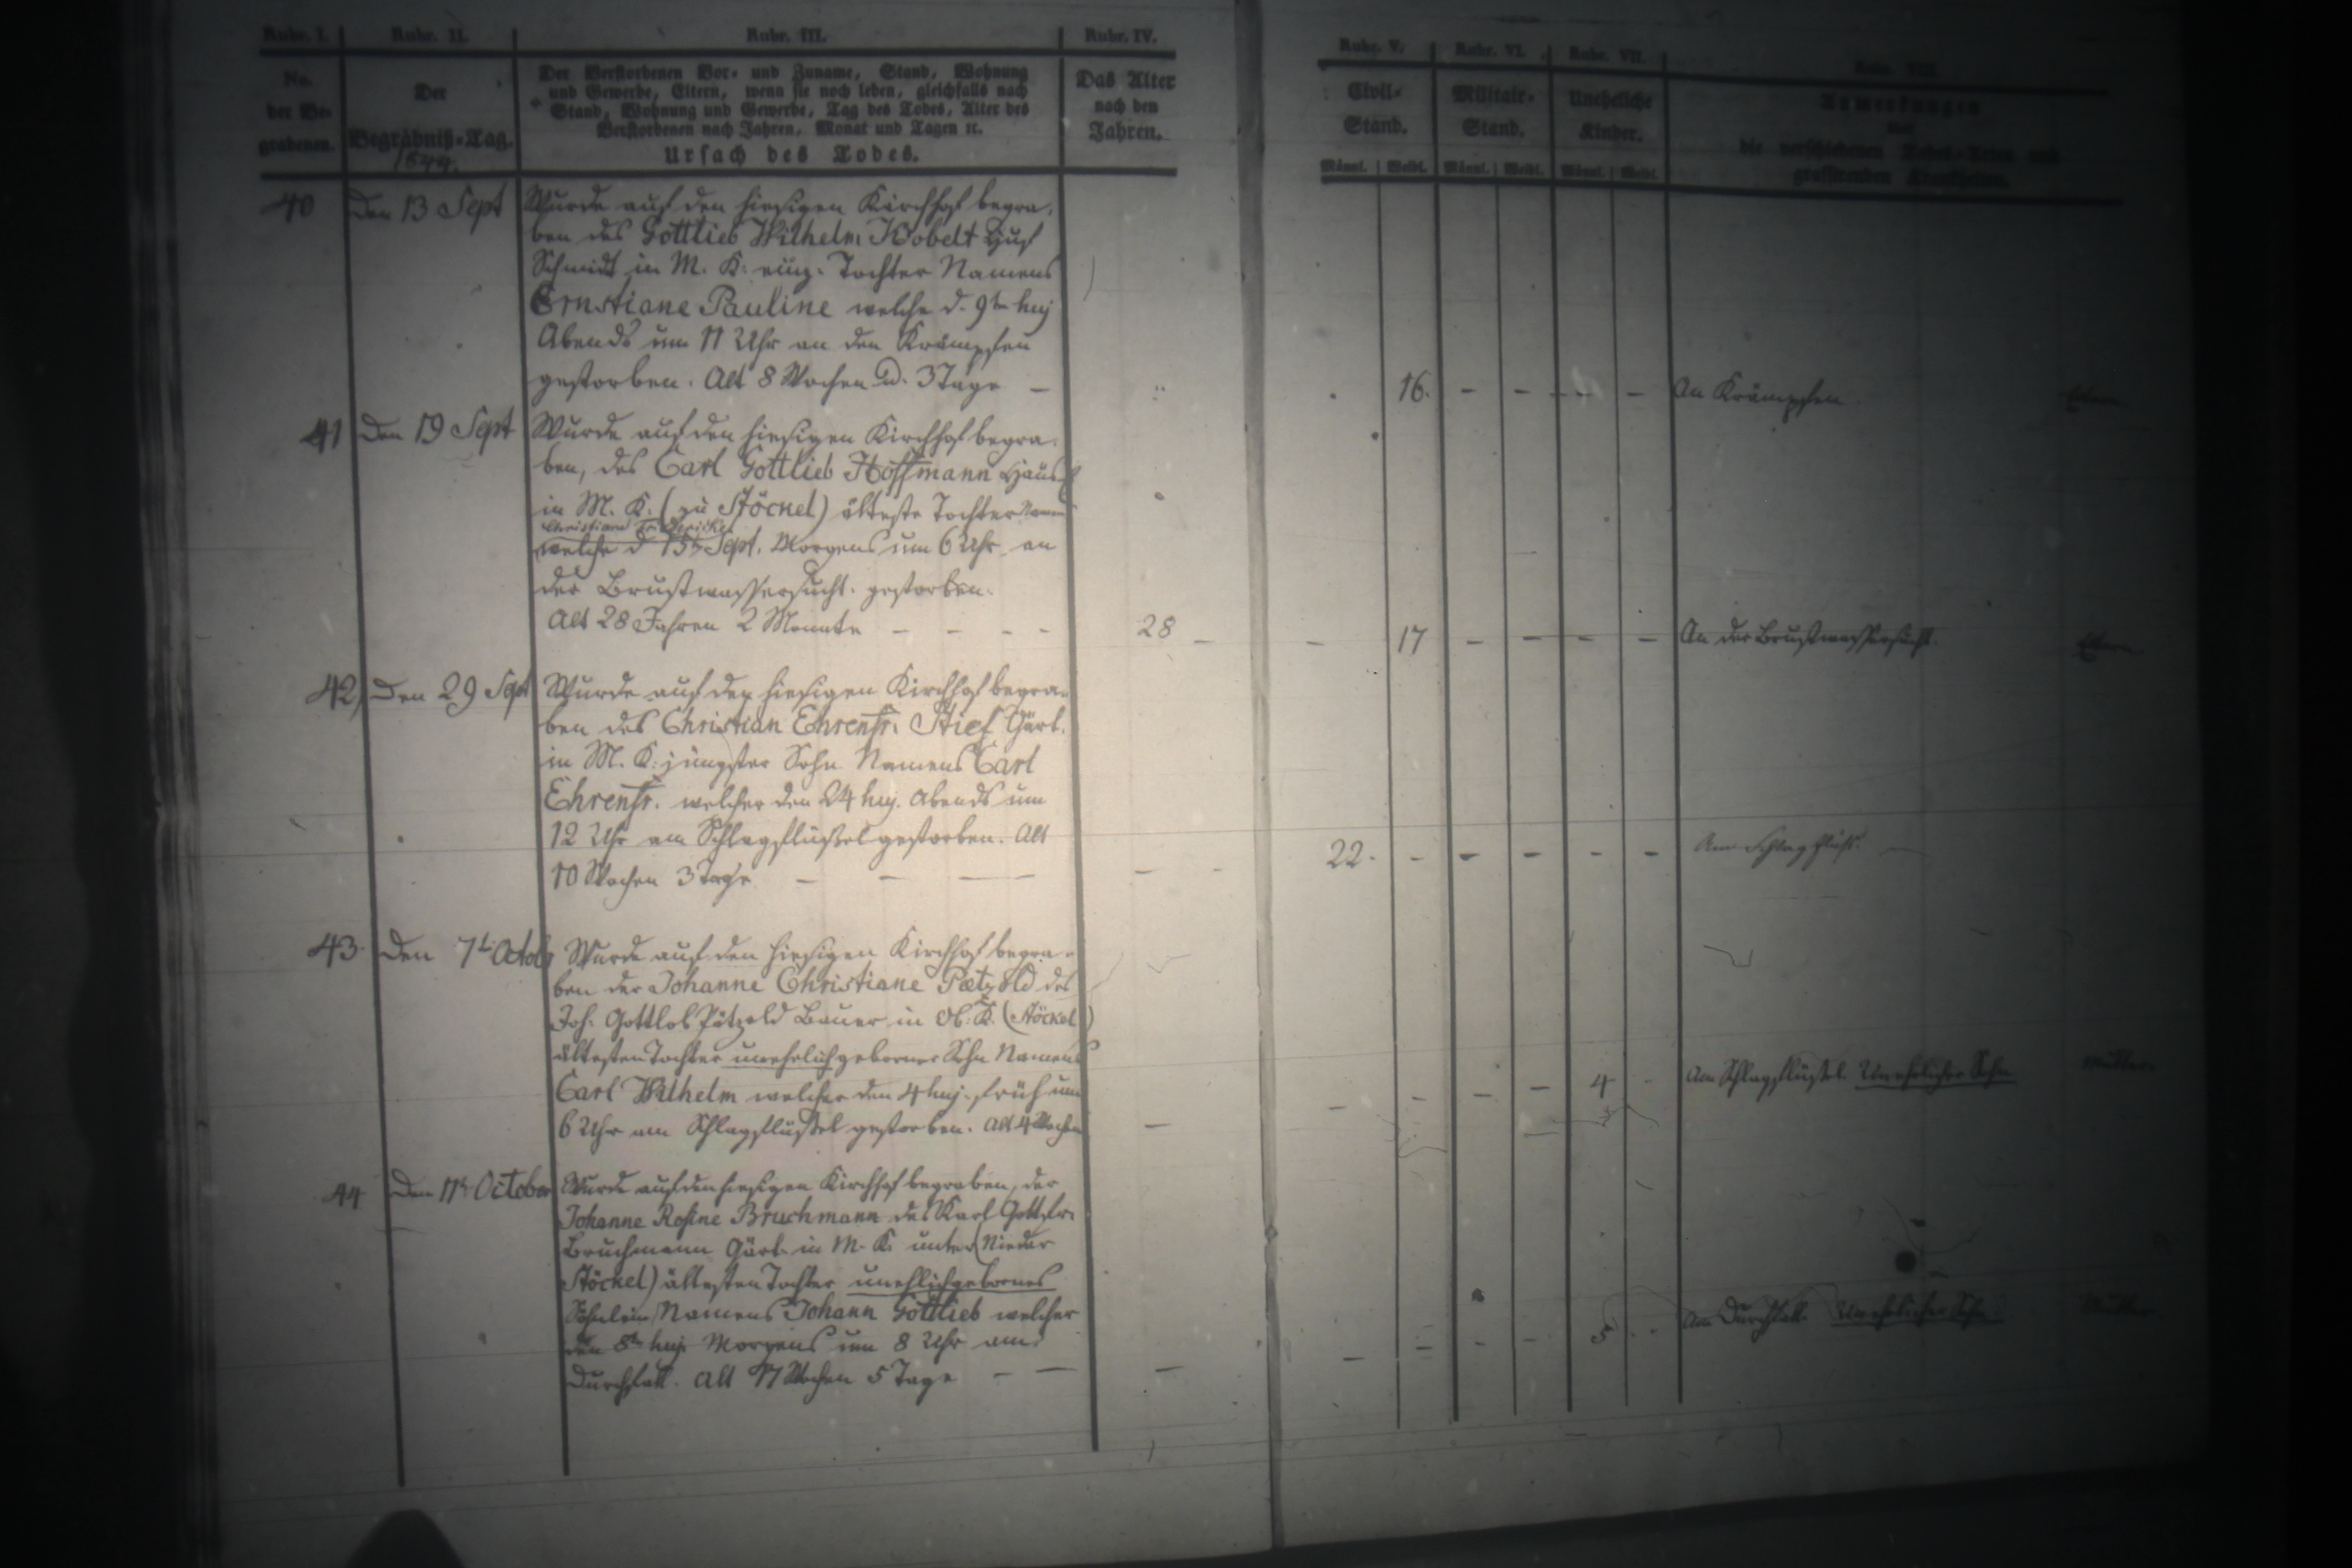 Rubr. I.
Rubr. II.
Rubr. III.
Rubr. IV.
Rubr. V.
Rubr. VI.
Rubr. VII.
Rubr. VIII.
No.
der Be-
grabenen.
Der
Begräbniß-Tag.
1844.
Der Verstorbenen Vor- und Zuname, Stand, Wohnung
und Gewerbe, Eltern, wenn sie noch leben, gleichfalls nach
Stand, Wohnung und Gewerbe, Tag des Todes, Alter des
Verstorbenen nach Jahren, Monat und Tagen ꝛc.
Ursach des Todes.
Das Alter
nach den
Jahren.
Civil-
Stand.
Männl. Weibl.
Militair-
Stand.
Männl. Weibl.
Uneheliche
Kinder.
Männl. Weibl.
Anmerkungen
über
die verschiedenen Todes-Arten und
grassirenden Krankheiten.
40 Den 13 Sept
Wurde auf den hiesigen Kirchhof begra-
ben des Gottlieb Wilhelm Kobelt Huf
Schmidt in M. K. einz. Tochter Namens
Ernstiane Pauline welche d. 9ten huj
Abends um 11 Uhr an den Krämpfen
gestorben. Alt 8 Wochen u. 3 Tage –
16. – – – – An Krämpfen
Eltern
41 Den 19 Sept
Wurde auf den hiesigen Kirchhof begra-
ben, des Carl Gottlieb Hoffmann Häusl
in M. K. (zu Stöckel) älteste Tochter Namens
Christiane Friedericke
welche d 15ten Sept. Morgens um 6 Uhr an
der Brustwassersucht gestorben.
Alt 28 Jahren 2 Monate – – – –
28 – – 17 – – – – An der Brustwassersucht.
Eltern
42, Den 29 Sept
Wurde auf den hiesigen Kirchhof begra-
ben des Christian Ehrenfr. Stief Gärt.
in M. K. jüngster Sohn Namens Carl
Ehrenfr. welcher den 24 huj. Abends um
12 Uhr am Schlagflüßel gestorben. Alt
10 Wochen 3 Tage – – –
– – 22. – – – – – Am Schlagfluß.
43. Den 7t Octob
Wurde auf den hiesigen Kirchhof begra-
ben der Johanne Christiane Pætzold des
Joh. Gottlob Pätzold Bauer in Ob. K. (Stöckel)
ältesten Tochter unehelich geborner Sohn Namens
Carl Wilhelm welcher den 4 huj. früh um
6 Uhr am Schlagflüßel gestorben. Alt 4 Wochen
– – – – – 4 – Am Schlagflüßel. Unehelicher Sohn
Mutter
44 Den 11t October
Wurde auf den hiesigen Kirchhof begraben, der
Johanne Rosine Bruchmann des Karl Gottfr.
Bruchmann Gärt. in M. K. unter (Nieder
Stöckel) ältesten Tochter unehlichgebornes
Söhnlein Namens Johann Gottlieb welcher
den 8ten huj Morgens um 8 Uhr am
Durchfall. Alt 17 Wochen 5 Tage – –
– – – – – 5 – Am Durchfall. Unehelicher Sohn
Mutter